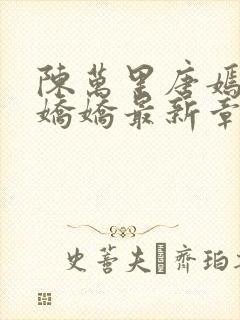 陳萬里唐嫣
嬌嬌最新章
史蒼夫齊珀